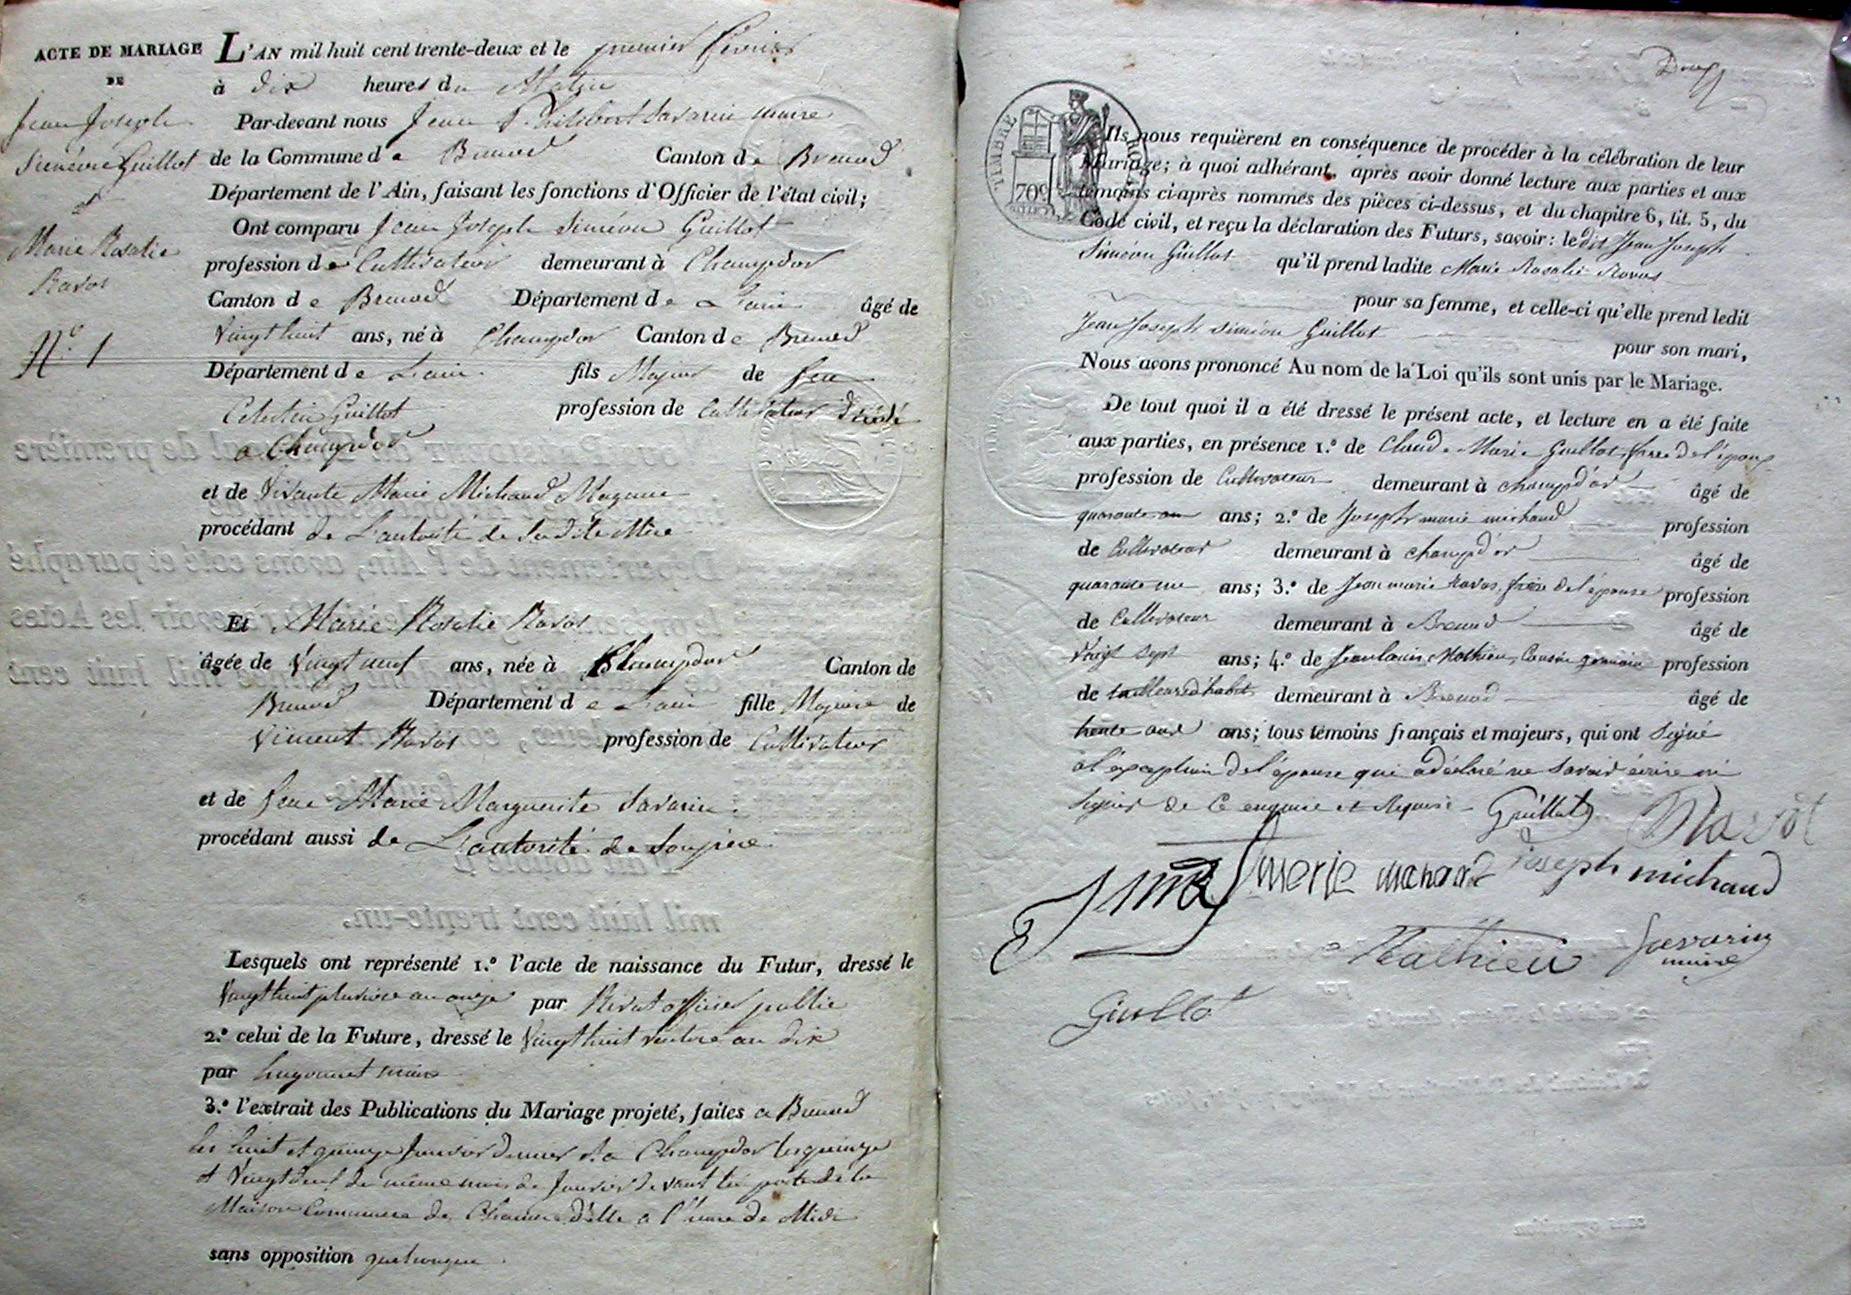 ACTE DE MARIAGE
DE
Jean Joseph
Siméon Guillot
et
Marie Rosalie
Ravot
N.º 1
L'AN mil huit cent trente-deux et le premier février
à dix heures du Matin
Par-devant nous Jean Philibert Savarin maire
de la Commune de Brenod Canton de Brenod
Département de l'Ain, faisant les fonctions d'Officier de l'état civil;
Ont comparu Jean Joseph Siméon Guillot
profession de Cultivateur demeurant à Champdor
Canton de Brenod Département de L'ain âgé de
Vingt huit ans, né à Champdor Canton de Brenod
Département de L'ain fils Majeur de feu
Celestin Guillot profession de Cultivateur décédé
a Champdor
et de Vivante Marie Michaud
procédant de L'autorité de Sadite Mère
Et Marie Rosalie Ravot
âgée de Vingt neuf ans, née à Champdor Canton de
Brenod Département de L'ain fille Majeure de
Vincent Ravot profession de Cultivateur
et de feue Marie Marguerite Savarin
procédant aussi de L'autorité de Son père
Lesquels ont représenté 1.º l'acte de naissance du Futur, dressé le
Vingt huit pluviose an onze par Rivat officier public
2.º celui de la Future, dressé le Vingt huit ventose an dix
par hugonnet maire
3.º l'extrait des Publications du Mariage projeté, faites a Brenod
les huit et quinze Janvier dernier et a Champdor les quinze
et Vingt deux du même mois de Janvier devant la porte de la
Maison Commune de Chacune d'elle a l'heure de Midi
sans opposition quelconque
TIMBRE ROYAL
70c
Ils nous requièrent en conséquence de procéder à la célébration de leur
Mariage; à quoi adhérant, après avoir donné lecture aux parties et aux
témoins ci-après nommés des pièces ci-dessus, et du chapitre 6, tit. 5, du
Code civil, et reçu la déclaration des Futurs, savoir: ledit Jean Joseph
Siméon Guillot qu'il prend ladite Marie Rosalie Ravot
pour sa femme, et celle-ci qu'elle prend ledit
Jean Joseph Siméon Guillot pour son mari,
Nous avons prononcé Au nom de la Loi qu'ils sont unis par le Mariage.
De tout quoi il a été dressé le présent acte, et lecture en a été faite
aux parties, en présence 1.º de Claude Marie Guillot frère de l'époux
profession de Cultivateur demeurant à champd'or âgé de
quarante ans; 2.º de Joseph marie michaud profession
de Cultivateur demeurant à champd'or âgé de
quarante un ans; 3.º de Jean marie Ravot, frère de l'épouse profession
de Cultivateur demeurant à Brenod âgé de
Vingt sept ans; 4.º de Jean louis Mathieu, Cousin germain profession
de tailleur d'habit demeurant à Brenod âgé de
trente ans; tous témoins français et majeurs, qui ont Signé
à l'exception de l'épouse qui a déclaré ne Savoir écrire ni
Signer de Ce enquise et Requise Guillot Ravot
joseph michaud
Mathieu Savarin
maire
Guillot